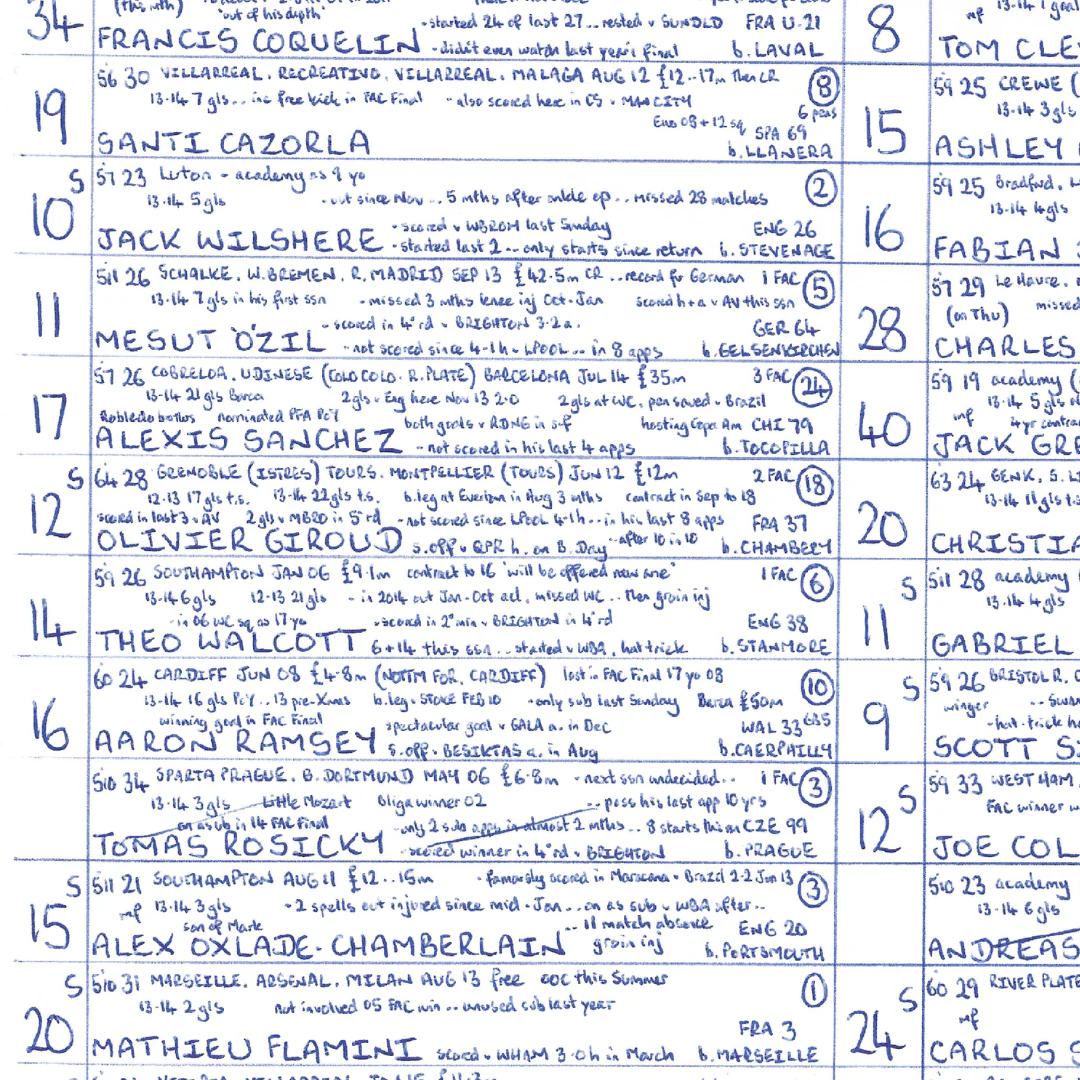 34
"out of his depth"
- started 24 of last 27.. rested v SUNDLD FRA U-21
FRANCIS COQUELIN - didn't even watch last year's final b. LAVAL
19
56 30 VILLARREAL. RECREATIVO. VILLARREAL. MALAGA AUG 12 £12..17m then CR 8
13-14 7 gls.. inc free kick in FAC Final - also scored here in CS v MAN CITY 6 pens
Euro 08+12 sq SPA 69
SANTI CAZORLA b. LLANERA
S 10
57 23 Luton - academy as 9 yo 2
13-14 5 gls - out since Nov.. 5 mths after ankle op.. missed 28 matches
- scored v WBROM last Sunday ENG 26
JACK WILSHERE - started last 2.. only starts since return b. STEVENAGE
11
511 26 SCHALKE. W.BREMEN. R.MADRID SEP 13 £42.5m CR ..record for German 1 FAC 5
13-14 7 gls in his first ssn - missed 3 mths knee inj Oct-Jan scored h+a v AV this ssn
- scored in 4'rd v BRIGHTON 3-2 a. GER 64
MESUT OZIL - not scored since 4-1h v LPOOL... in 8 apps b. GELSENKIRCHEN
17
57 26 COBRELOA. UDINESE (COLO COLO. R.PLATE) BARCELONA JUL 14 £35m 3 FAC 24
13-14 21 gls Barca 2gls v Eng here Nov 13 2-0 2 gls at WC, pen saved v Brazil
nominated PFA PoY both goals v RDNG in s-f hosting Copa Am CHI 79
ALEXIS SANCHEZ - not scored in his last 4 apps b. TOCOPILLA
S 12
64 28 GRENOBLE (ISTRES) TOURS. MONTPELLIER (TOURS) JUN 12 £12m 2 FAC 18
12-13 17 gls t.s. 13-14 22 gls t.s. b.leg at Everton in Aug 3 mths contract in Sep to 18
scored in last 3 v AV 2 gls v MBRO in 5'rd - not scored since LPOOL 4-1h.. in his last 8 apps FRA 37
OLIVIER GIROUD s.off v QPR h. on B.Day - after 10 in 10 b. CHAMBERY
14
59 26 SOUTHAMPTON JAN 06 £9.1m contract to 16 'will be offered new one' 1 FAC 6
13-14 6 gls 12-13 21 gls - in 2014 out Jan-Oct acl, missed WC.. then groin inj
- in 06 WC sq as 17 yo - scored in 2'min v BRIGHTON in 4'rd ENG 38
THEO WALCOTT 6+14 this ssn.. started v WBA, hat trick b. STANMORE
16
60 24 CARDIFF JUN 08 £4.8m (NOTTM FOR. CARDIFF) lost in FAC Final 17 yo 08 10
13-14 16 gls PoY.. 13 pre-Xmas b.leg v STOKE FEB 10 - only sub last Sunday Barca £50m
winning goal in FAC Final spectacular goal v GALA a. in Dec WAL 33
AARON RAMSEY s.off v BESIKTAS a. in Aug b. CAERPHILLY
510 34 SPARTA PRAGUE. B.DORTMUND MAY 06 £6.8m - next ssn undecided.. 1 FAC 3
13-14 3 gls Little Mozart Bliga winner 02 .. poss his last app 10 yrs
on as sub in 14 FAC Final - only 2 sub apps in almost 2 mths.. 8 starts this ssn CZE 99
TOMAS ROSICKY - scored winner in 4'rd v BRIGHTON b. PRAGUE
S 15
511 21 SOUTHAMPTON AUG 11 £12..15m - famously scored in Maracana v Brazil 2-2 Jun 13 3
mf 13-14 3 gls - 2 spells out injured since mid-Jan...on as sub v WBA after..
son of Mark .. 11 match absence ENG 20
ALEX OXLADE-CHAMBERLAIN groin inj b. PORTSMOUTH
S 20
510 31 MARSEILLE. ARSENAL. MILAN AUG 13 free OOC this Summer 1
13-14 2 gls not involved 05 FAC win.. unused sub last year
FRA 3
MATHIEU FLAMINI scored v WHAM 3-0h in March b. MARSEILLE
8
mf 13-14 1 goal
TOM CLE
15
59 25 CREWE (
13-14 3 gls
ASHLEY
16
59 25 Bradford.
13-14 4 gls
FABIAN
28
57 29 Le Havre.
(on Thu) missed
CHARLES
40
59 19 academy (
13-14 5 gls N
mf 4yr contra
JACK GRE
20
63 24 GENK. S. L
13-14 11 gls t.s.
CHRISTIA
S 11
511 28 academy (
13-14 4 gls
GABRIEL
S 9
59 26 BRISTOL R. C
winger -- Swan
- hat-trick h
SCOTT S
S 12
59 33 WEST HAM.
FAC winner w
JOE COL
510 23 academy
13-14 6 gls
ANDREAS
S 24
60 29 RIVER PLATE
mf
CARLOS S